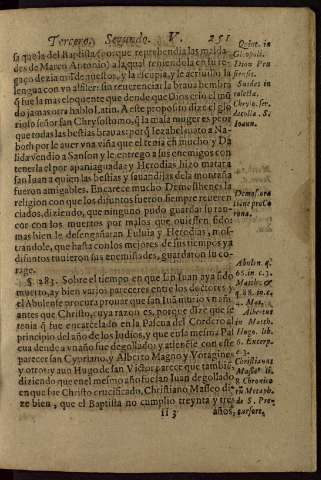 Tercero, Segundo. V. 251
sa que la del Baptista (porque reprehendia las malda-
des de Marco Antonio) a la qual teniendola en su re-
gaço dezia mil denuestos, y la escupia, y le acriuillò la
lengua con vn alfiler: sin reuerencia la braua hembra
q̃ fue la mas eloquente que
do jamas otra hablo Latin. A este proposito dize el glo
rioso señor san Chrysostomo, q̃ la mala muger es peor
que todas las bestias brauas: porq̃ Iezabel mato a Na-
both por le auer vna viña que el tenia en mucho y Da
lida vendio a Sanson y le entrego a sus enemigos con
tenerla el por apaniaguada: y Herodias hizo matar a
san Iuan a quien las bestias y sauandijas de la montaña
fueron amigables. Encarece mucho Demosthenes la
religion con que los difuntos fueron siempre reueren
ciados, diziendo, que ninguno pudo guardar su ran-
cor con los muertos por malos que ouiessen sido:
mas bien le desengañaran Fuluia y Herodias, mos-
trandole, que hasta con los mejores de sus tiempos ya
difuntos tuuieron sus enemistades, guardaron su co-
rage.
§ 283. Sobre el tiempo en que san Iuan aya sido
muerto, ay bien varios pareceres entre los doctores y
el Abulense procura prouar que san Iuã murio vn año
antes que Christo, cuya razon es, porque dize que se
tenia q̃ fue encarcelado en la Pascua del Cordero al
principio del año de los Iudios, y que en esta misma Pas
cua dende a vn año fue degollado y atienese con este
parecer san Cypriano, y Alberto Magno y Voragines
y otros: y aun Hugo de san Victor parece que tambien,
diziendo que en el mesmo año fue san Iuan degollado
en que fue Christo crucificado, Christiano Masseo di-
ze bien, que el Baptista no cumplio treynta y tres
Ii 3 años,
Quint. in
Dion Pra
siensis.
Suidas in
Chryso. ser.
decolla. S.
Ioann.
Demost. ora
tione pro Co
rona.
Abulen. q.
66. in c. 3.
Matth. &
q. 48. in c.
4. Mat.
Albertus
in Matth.
Hugo. lib.
6. Excerp.
c. 3.
Christianus
Masse9 li.
8 Chronico
de S. Pre-